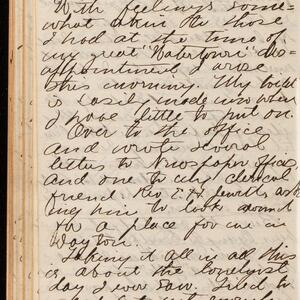 With feelings some=
what akin to those
I had at the time of
my great "Watertown" dis=
appointment I arose
this morning. My toilet
is easily made now when
I have little to put on.
Over to the office
and wrote several
letters to Newspaper offices
and one to my clerical
friend Rev E. H. Jewett ask
ing him to look around
for a place for me in
Dayton.
Taking it all in all this
is about the loneliest
day I ever saw. Tried to